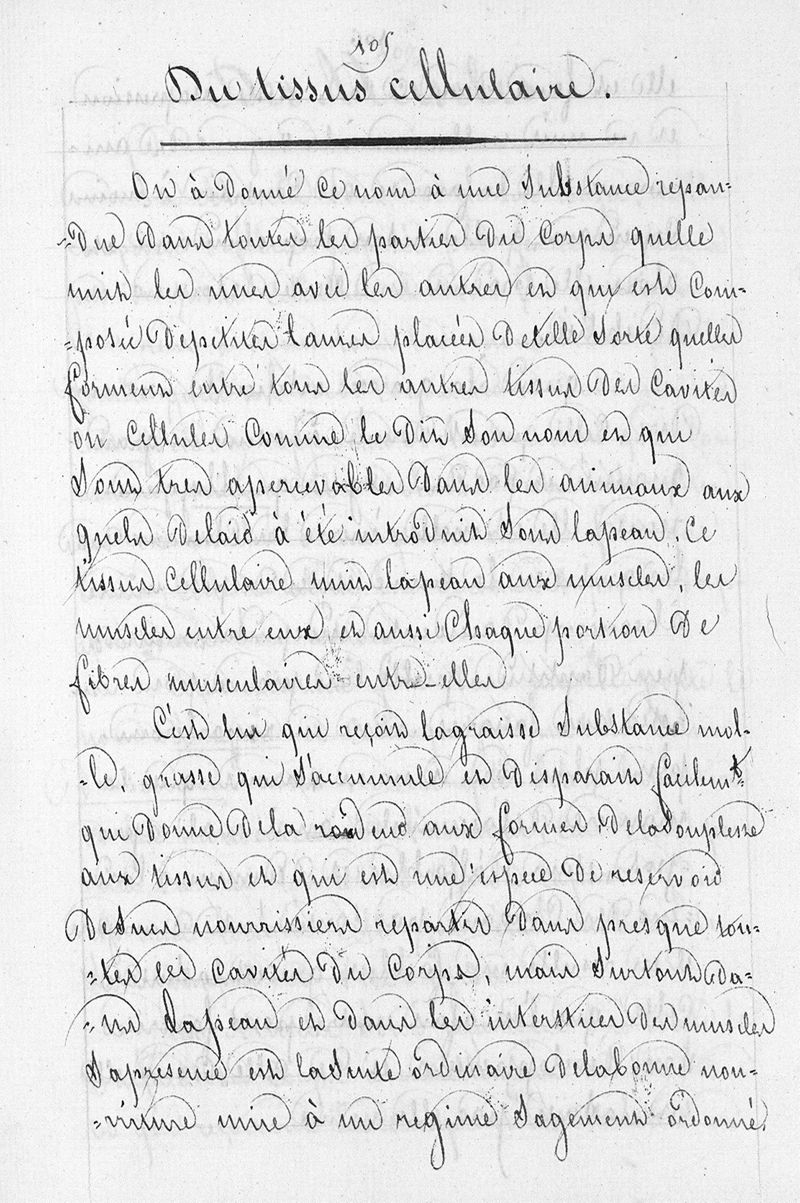 105
Du tissus cellulaire.
On à Donné ce nom à une Substance repan-
-Due Dans toutes les parties Du Corps quelle
unit les unes avec les autres et qui est Com-
-posée Depetites lames placées Detelle Sorte quelles
forment entre tous les autres tissus Des Cavités
ou Cellules Comme le Dit Son nom et qui
Sont tres apercevables Dans les animaux aux
quels Delair à été introduit Sous lapeau. Ce
tissus Cellulaire unit lapeau aux muscles, les
muscles entre eux et aussi Chaque portion De
fibres musculaires entre-elles
C'est lui qui reçoit lagraisse Substance mol-
-le, grasse qui S'accumule et Disparait facilemt
qui Donne De la rondeur aux formes, Delasouplesse
aux tissus et qui est une espece De reservoir
DeSucs nourrissiers repartis Dans presque tou-
-tes les Cavités Du Corps, mais Surtout Da-
-ns Lapeau et Dans les interstices Des muscles
Sapresence est laSuite ordinaire Delabonne nou-
-rriture unie à un regime Sagement ordonné.